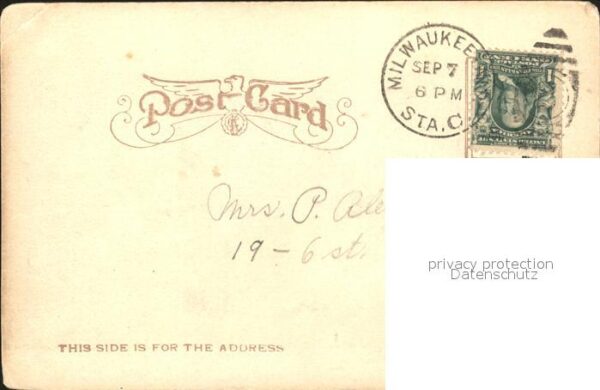 Post Card
MILWAUKEE
SEP 7
6 PM
STA. C.
Mrs. P.
19 - 6 st.
privacy protection
Datenschutz
THIS SIDE IS FOR THE ADDRESS